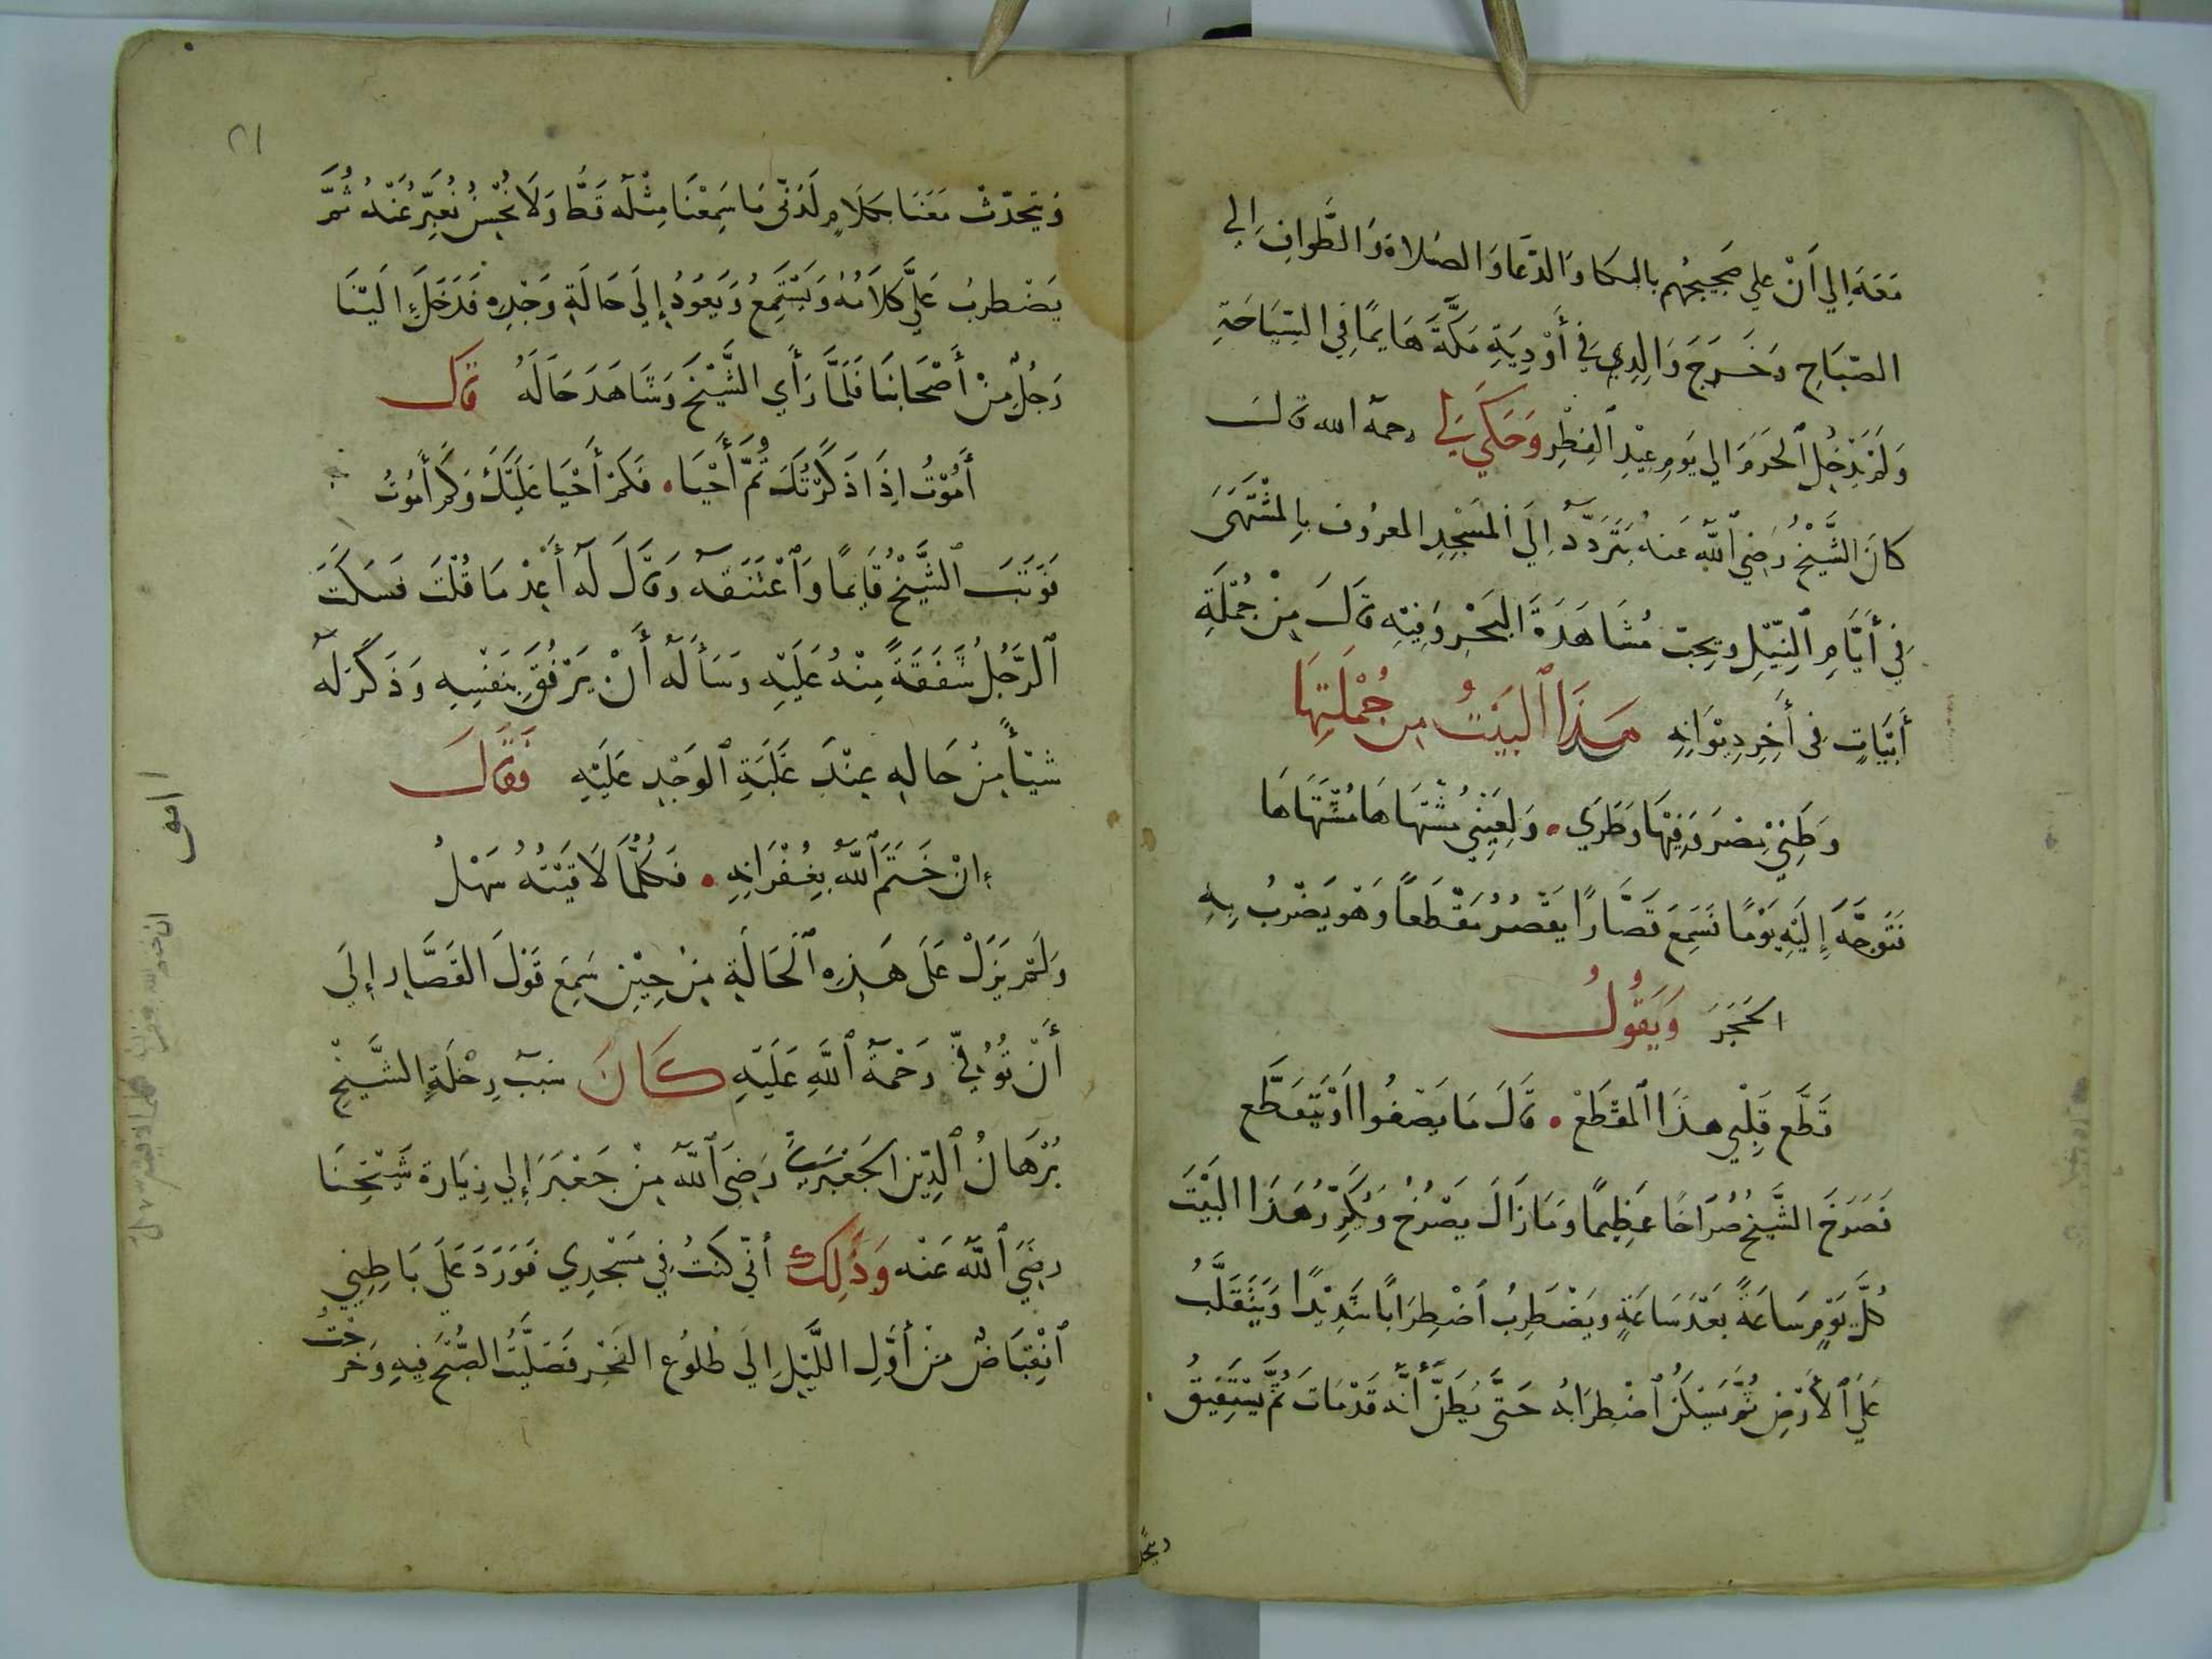 مَعَهُ إِلي أَنْ علي ضجيجهم بالبكا وَالدّعا وَالصلاة وَالطَّوافِ إلي
الصّبَاحِ وَخَرَجَ وَالِدِي فِي أَوْدِيَةِ مَكَّةَ هَايمًا فِي السِّيَاحَةِ
وَلَمْ يَدْخُلِ ٱلحَرَمَ الي يَومِ عِيْدِ ٱلفِطْرِ وَحَكَي لي رحمه الله قالـ
كانَ الشَّيْخُ رَضِيَ ٱللَّه عَنهُ يَتَرَدَّدُ إِلَي المَسْجِدِ المعرُوف بِالمُشْتَهَى
فِي أَيَّامِ ٱلنِّيْلِ ويحِبّ مُشَاهَدَةَ البَحْرِ وَفِيْهِ قَالَ مِنْ جُمْلَةِ
أَبْيَاتٍ فِى أَخِرِ دِيْوَانِهِ هَذَا ٱلبَيْتُ مِن جُمْلَتِهَا
وَطَنِيْ مِصْرَ وَفِيْهَا وَطَرِي • وَلِعَيْنِي مُشْتَهَاهَا مُشْتَهَاهَا
فَتَوَجَّهَ إِلَيْهِ يَوْمًا فَسَمِعَ قَصَّارًا يَقْصُرُ مَقْطَعًا وَهْوَ يَضْرِبُ بِهِ
الحَجَرَ وَيَقُولُ
قَطَّع قَلْبِي هذَا ٱلمَقْطَعْ • قالَ مَا يَصْفُوا اَوْ يَتَقَطَّع
فَصَرَخَ الشَّيْخُ صُرَاخًا عَظِيمًا وَمَا زَالَ يَصْرُخُ وَيُكَرِّرُ هَذَا البَيْتَ
كُلَّ يَوْمٍ سَاعَةً بَعْدَ سَاعَةٍ وَيَضْطَرِبُ اضْطِرَابًا شَدِيْدًا وَيَتَقَلَّبُ
عَلَي ٱلأَرْضِ ثُمَّ يَسْكُنُ ٱضْطِرَابُهُ حَتَّى يُظَنَّ أَنَّه قَدْ مَاتَ ثُمَّ يَسْتَفِيقُ
ويتحد
٢١
وَيتحدّث مَعَنَا بِكَلَامٍ لَدُنّى مَا سَمِعْنَا مِثْلَه قَطُّ وَلَا نُحْسِنُ نُعَبِّرُ عَنْهُ ثُمَّ
يَضْطَرِبُ عَلَي كَلَامُهُ وَيَسْتَمِعُ وَيَعُودُ إِلَي حَالَةِ وَجْدِهِ فَدَخَلَ إِلَيْنَا
رَجُلٌ مِنْ أَصْحَابِنَا فَلَمَّا رَأَي الشَّيْخَ وَشَاهَدَ حَالَهُ قالـ
أَمُوْتُ إِذَا ذَكَرْتُكَ ثُمَّ أَحْيَا • فَكَمْ أَحْيَا عَلَيْكَ وَكَمْ أَمُوْتُ
فَوَثَبَ ٱلشَّيْخُ قَايمًا وَٱعْتَنَقَه وَقَالَ لَه أَعِدْ مَا قُلْتَ فَسَكَتَ
ٱلرَّجُلُ شَفَقَةً مِنْهُ عَلَيْهِ وَسَأَلَه أَنْ يَرْفُقَ بِنَفْسِهِ وَذَكَرَ لَه
شَيْئًا مِنْ حَالِهِ عِنْدَ غَلَبَةِ ٱلوَجْدِ عَلَيْهِ فَقَالَ
إِنْ خَتَمَ ٱللَّه بِغُفْرَانِهِ • فَكُلُّمَا لَاقَيْتُهُ سَهْلُ
وَلَمْ يَزَلْ عَلَى هَذِهِ ٱلحَالَةِ مِنْ حِيْنِ سَمِعَ قَوْلَ القَصَّارِ إِلَى
أَنْ تُوُفّي رَحْمَةُ ٱللَّهِ عَلَيْهِ كَانَ سَبَبُ رِحْلَةِ الشَّيْخِ
بُرْهَانُ ٱلدِّينِ الجَعْبَرِيِّ رَضِيَ ٱللَّهُ مِنْ جَعْبَرَ إِلي زِيَارة شَيْخِنَا
رضِيَ ٱللَّه عَنْه وَذَلِكَ أَنّي كُنْتُ فِي مَسْجِدِي فَوَرَدَ عَلَي بَاطِنِي
ٱنْقِبَاضٌ مِنْ أَوَّلِ اللَّيْلِ إِلَى طُلُوعِ الفَجْرِ فَصَلَّيْتُ الصُّبْحَ فِيهِ وَخَرَجْتُ